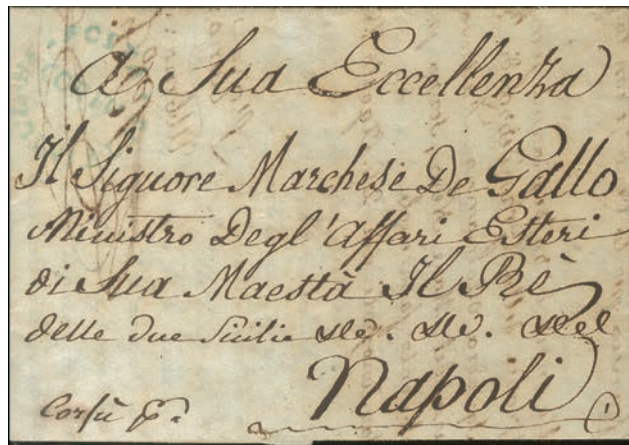 A Sua Eccellenza
Il Signore Marchese De Gallo
Ministro Degl'Affari Esteri
di Sua Maestà Il Rè
delle due Sicilie
Napoli
Corfù